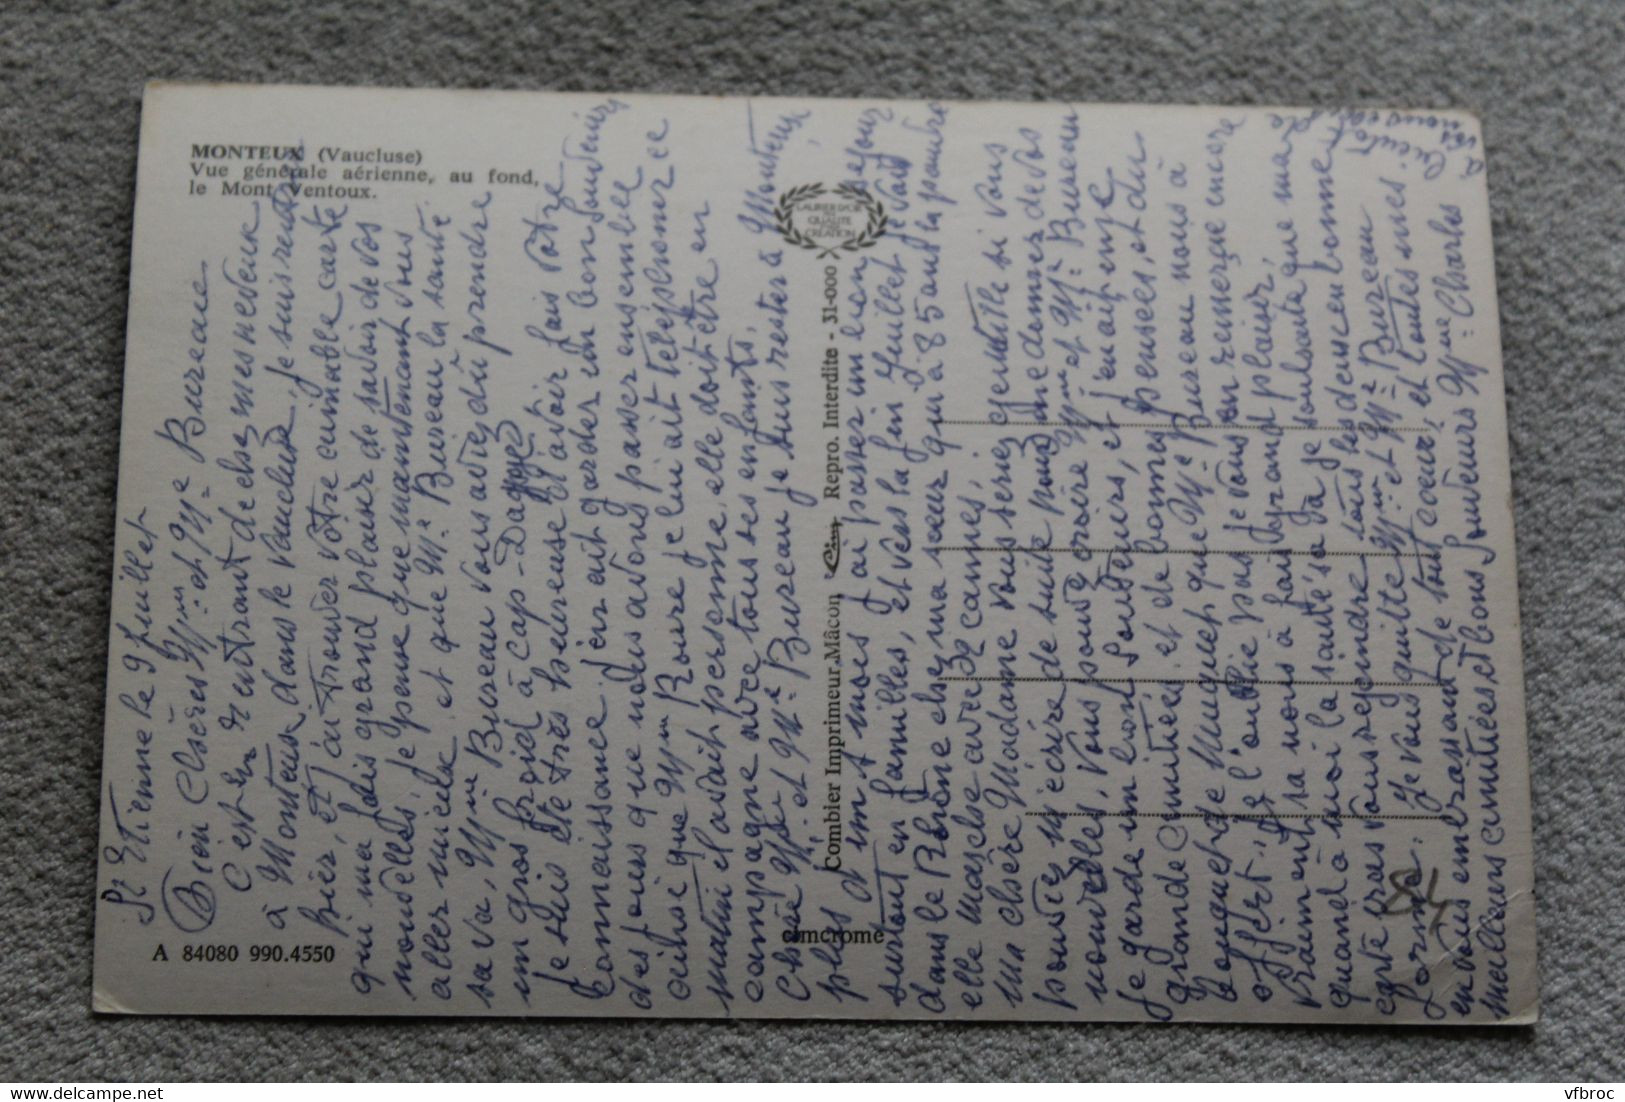 MONTEUX (Vaucluse)
Vue générale aérienne, au fond,
le Mont Ventoux.
A 84080 990.4550
Combier Imprimeur Mâcon "Cim" Repro. Interdite - 31-000
LAURIER D'OR
DE
QUALITÉ
CRÉATION
cimcrome
84
St Etienne le 9 Juillet
Bien Chères Mme et Mr Bureau
C'est en rentrant de chez mes neveux
à Monteux dans le Vaucluse, je suis rentrée
hier, et j'ai trouver votre aimable carte
qui ma fais grand plaisir de savoir de vos
nouvelles, je pense que maintenant vous
aller mieux et que Mr Bureau la santé
sa va, Mme Bureau vous avez dû prendre
un gros froid à cap-Dagde
Je suis été très heureuse d'avoir fais votre
Connaissance. J'en ait garder un bon Souvenirs
des jours que nous avons passer ensemble
ainsi que Mme Roure je lui ait téléphoner ce
matin il avait personne, elle doit être en
campagne avec tous ses enfants,
Chère Mme et Mr Bureau je suis rester à Monteux
plus d'un mois J'ai passer un bon séjour
surtout en familles, et vers la fin Juillet je vais
dans le Rhône chez ma sœur qui à 85 ans la pauvre
elle marche avec 2 cannes,
Ma chère Madame vous serier gentille si vous
pouvier m'écrire de suite pour me donner de vos
nouvelles, vous pouvez croire Mme et Mr Bureau
Je garde un bon Souvenirs, et j'en ait eu je
grande amitiée et de bonnes pensées, et du
bouquet de Muguet que Mr Bureau nous à
offert, je l'oublie pas je vous en remerçie encore
vraiment sa nous à fais grand plaisir,
quand à moi la santé sa va je souhaite que ma
carte vas vous rejoindre tous les deux en bonne
forme. Je vous quitte Mme et Mr Bureau
en vous embrassant de tout cœur, et toutes mes
meilleurs amitiées et bons Souvenirs Mme Charles